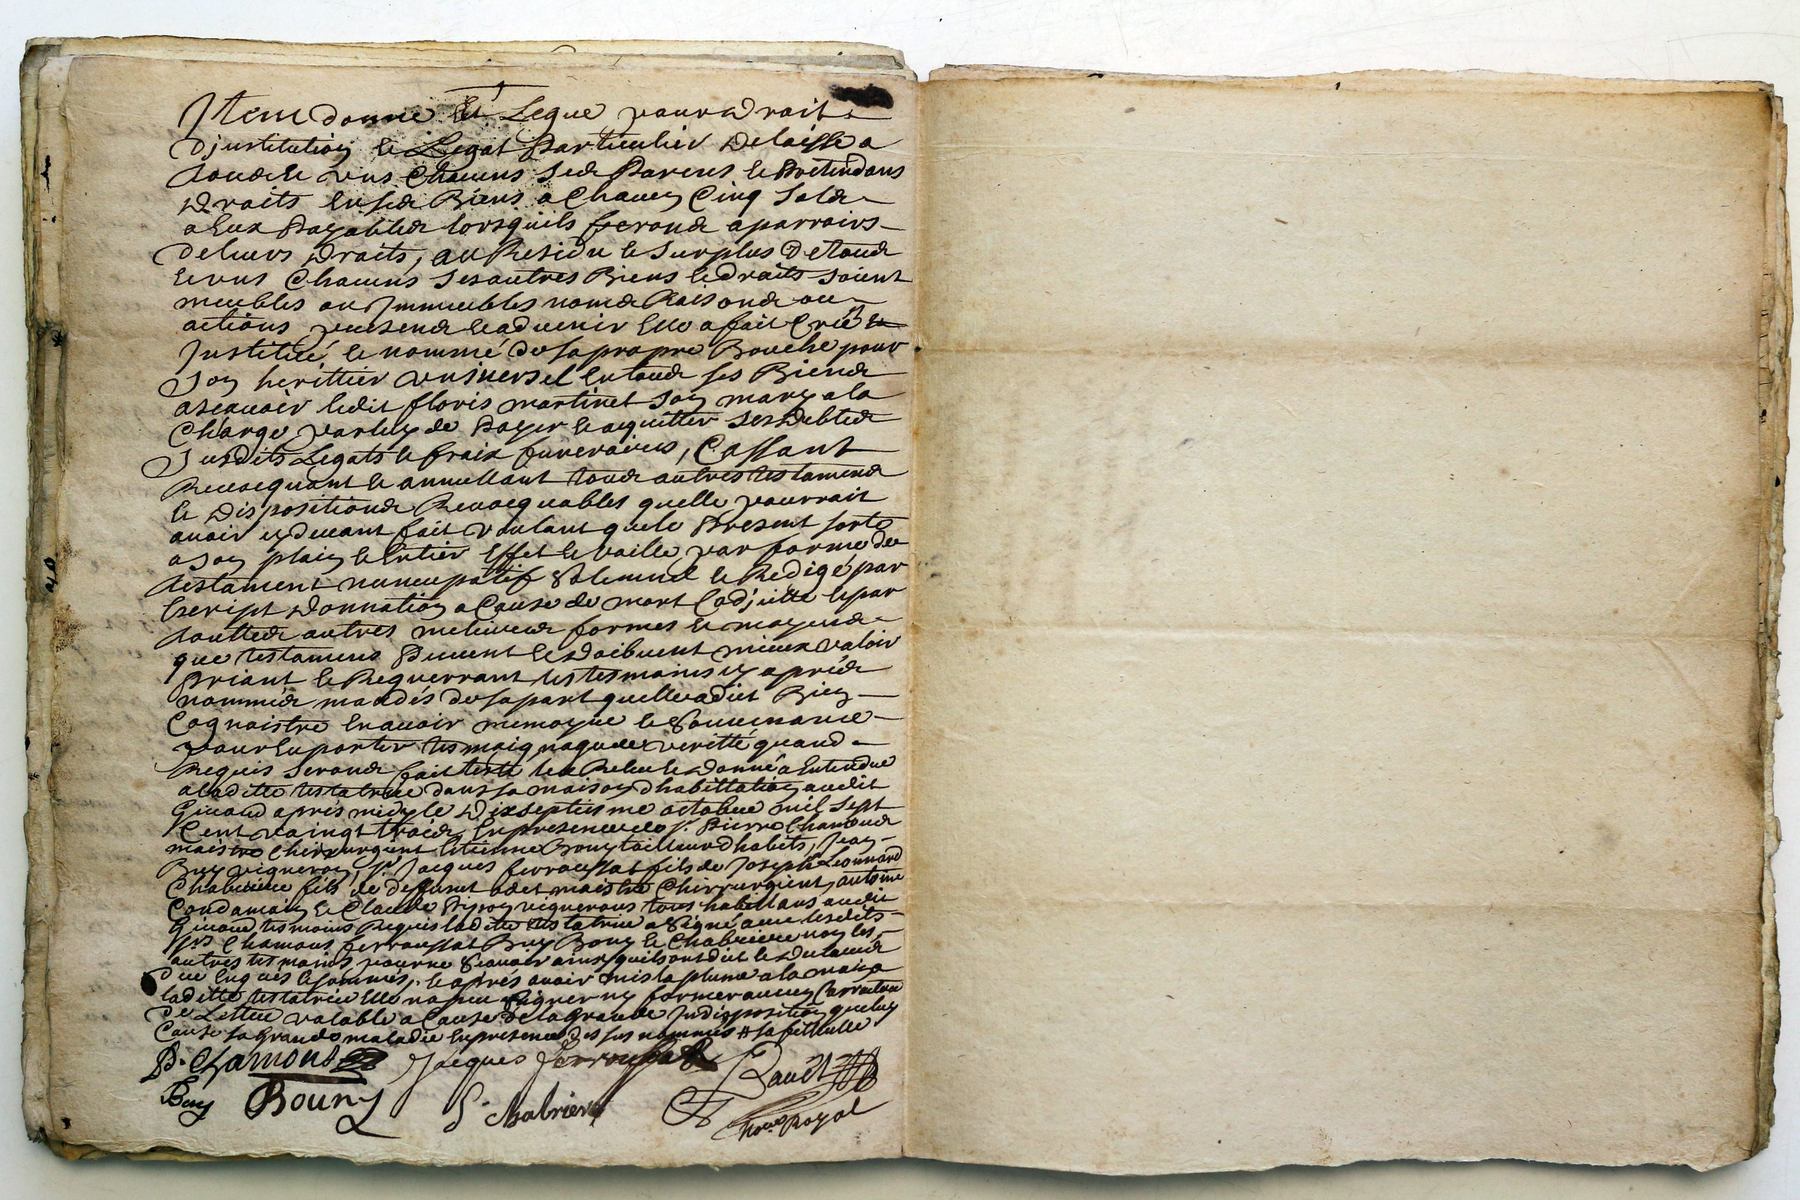 Item donne et Legue pour droit
d'jnstitution et Legat Particulier Delaisse a
toude et uns Chacuns Sed Parens et Pretendans
Droits En sed Biens a Chacun Cinq Solds
a Eux Payables lorsquils feronds aparroirs
de leurs Droits, au Residu et Surplus De touds
et uns Chacuns Ses autres Biens et droits soient
meubles ou Jmmeubles nomds Raisonds ou
actions presends et aduenir Elle a fait Créé &
Jnstitué et nommé de sa propre Bouche pour
Son herittier unjversel En touds ses Biends
ascauoir ledit floris martinet Son mary a la
Charge par luy de Payer et aquitter Ses Debteds
Susdits Legats et fraix funeraires, Cassant
Reuocquant et annullant touds autres testamends
et Dispositionds Reuocquables quelle pourroit
auoir cy deuant fait voulant que le Present sorte
a Son plain et Entier Effet et vaille par forme de
testament nuncupatif Solemnel et Redigé par
Escript Donnation a Cause de mort Codjcille et par
touttes autres melieureds formes et moyends
que testamens Peuuent et Doibuent mieux valoir
Priant et Requerrant les tesmoins cy apréds
nommés mandés de sa part quelle a diet Bien
Cognoistre En auoir memoyre et Souuenance
pour En porter tesmoignaguede veritté quand
Requis Seronds fait testé leu Releu et Donné a Entendre
a laditte testatrice dans sa maison dhabittation audit
après midy le Dixseptiesme octobre mil Sept
Cent vaingt troids En presence de sr. Pierre Chamonds
maistre Chirurgient Etienne Bouy tailleur dhabits, Jean
Buy vigneron, sr. Jacques ferroussat fils de Joseph Leonnard
Chabriere fils de deffunct adet maistre Chirurgient, antoine
Condamain et Claude vignerons tous habittans audit
tesmoins Requis laditte testatrice a Signé auec lesdits
srs Chamons ferroussat Buy Bouy et Chabriere non les
autres tesmoins pour ne Scauoir ainsy quils ont dict et
Enquis et Sommés, et aprés auoir mis la plume a la main a
laditte testatrice Elle na peu Signer ny former aucun Carractere
de Lettre valable a Cause de la grande Jndisposition que luy
Cause sa grande maladie En presence des sus nommés
P. Chamont Jacques Ferroussat
Buy Bouny L. Chabriere
Royal